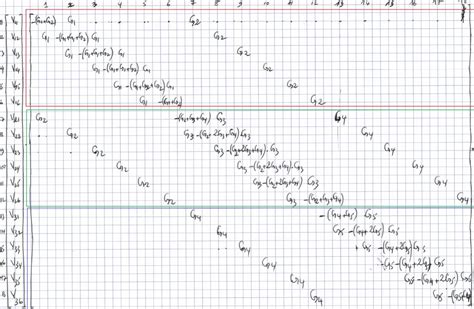 1 2 3 4 5 6 7 8 9 10 11 12 13 14 15 16 17
V11 -(G1+G2) G1 G2
V12 G1 -(G1+G1+G2) G1 G2
V13 G1 -(G1+G1+G2) G1 G2
V14 G1 -(G1+G1+G2) G1 G2
V15 G1 -(G1+G1+G2) G1 G2
V16 G1 -(G1+G2) G2
V21 G2 G3 G4
V22 G2 G3 -(G2+2G3+G4) G3 G4
V23 G2 G3 -(G2+2G3+G4) G3 G4
V24 G2 G3 -(G2+2G3+G4) G3 G4
V25 G2 G3 -(G2+2G3+G4) G3 G4
V26 G2 G3 -(G2+G3+G4) G4
V31 G4 -(G4+G5) G5
V32 G4 G5 -(G4+2G5) G5
V33 G4 G5 -(G4+2G5) G5
V34 G4 G5 -(G4+2G5) G5
V35 G4 G5 -(G4+2G5) G5
V36 G4 G5